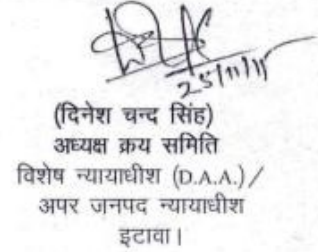 25/11/11
(दिनेश चन्द सिंह)
अध्यक्ष क्रय समिति
विशेष न्यायाधीश (D.A.A.)/
अपर जनपद न्यायाधीश
इटावा।